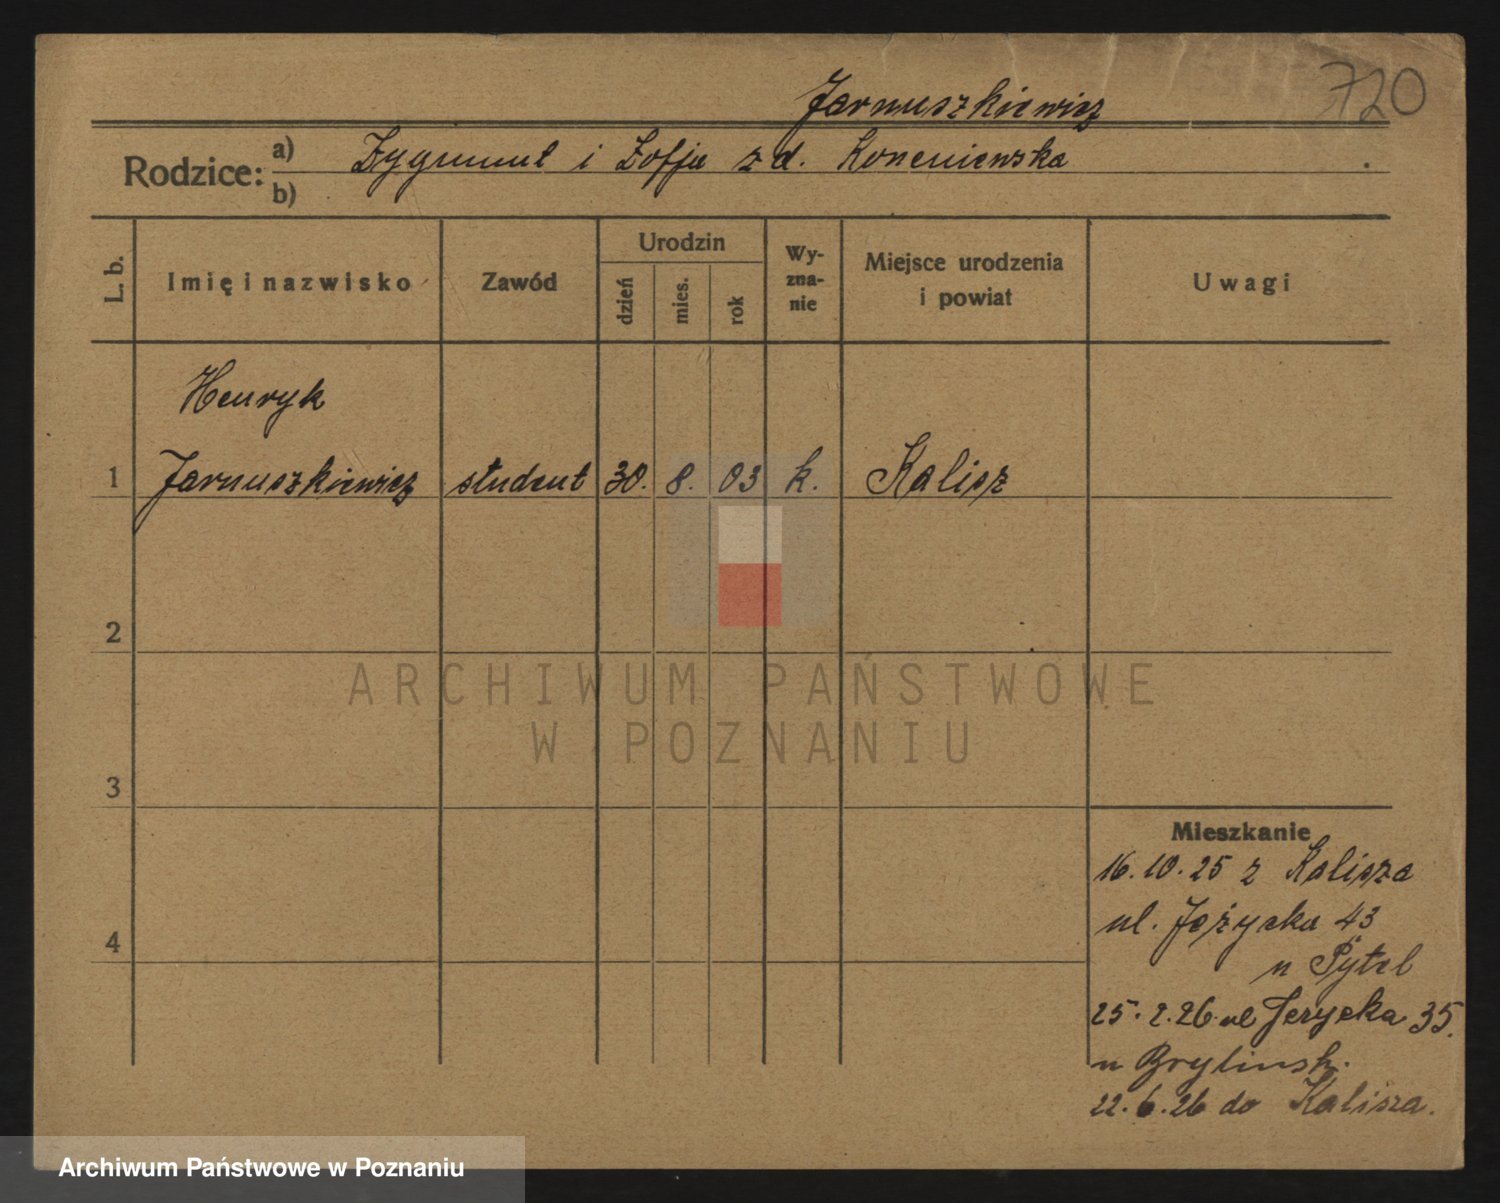 720
Jarnuszkiewicz
Rodzice: a) Zygmunt i Zofja z d. Koneniewska
b)
L. b. Imię i nazwisko Zawód Urodzin dzień mies. rok Wy-zna-nie Miejsce urodzenia i powiat Uwagi
Henryk
1 Jarnuszkiewicz student 30. 8. 03 k. Kalisz
2
ARCHIWUM PAŃSTWOWE
W POZNANIU
3
Mieszkanie
16.10.25 z Kalisza
ul. Jeżycka 43
4
u Pytel
25.2.26 ul Jerycka 35.
u Brylinsk.
22.6.26 do Kalisza.
Archiwum Państwowe w Poznaniu